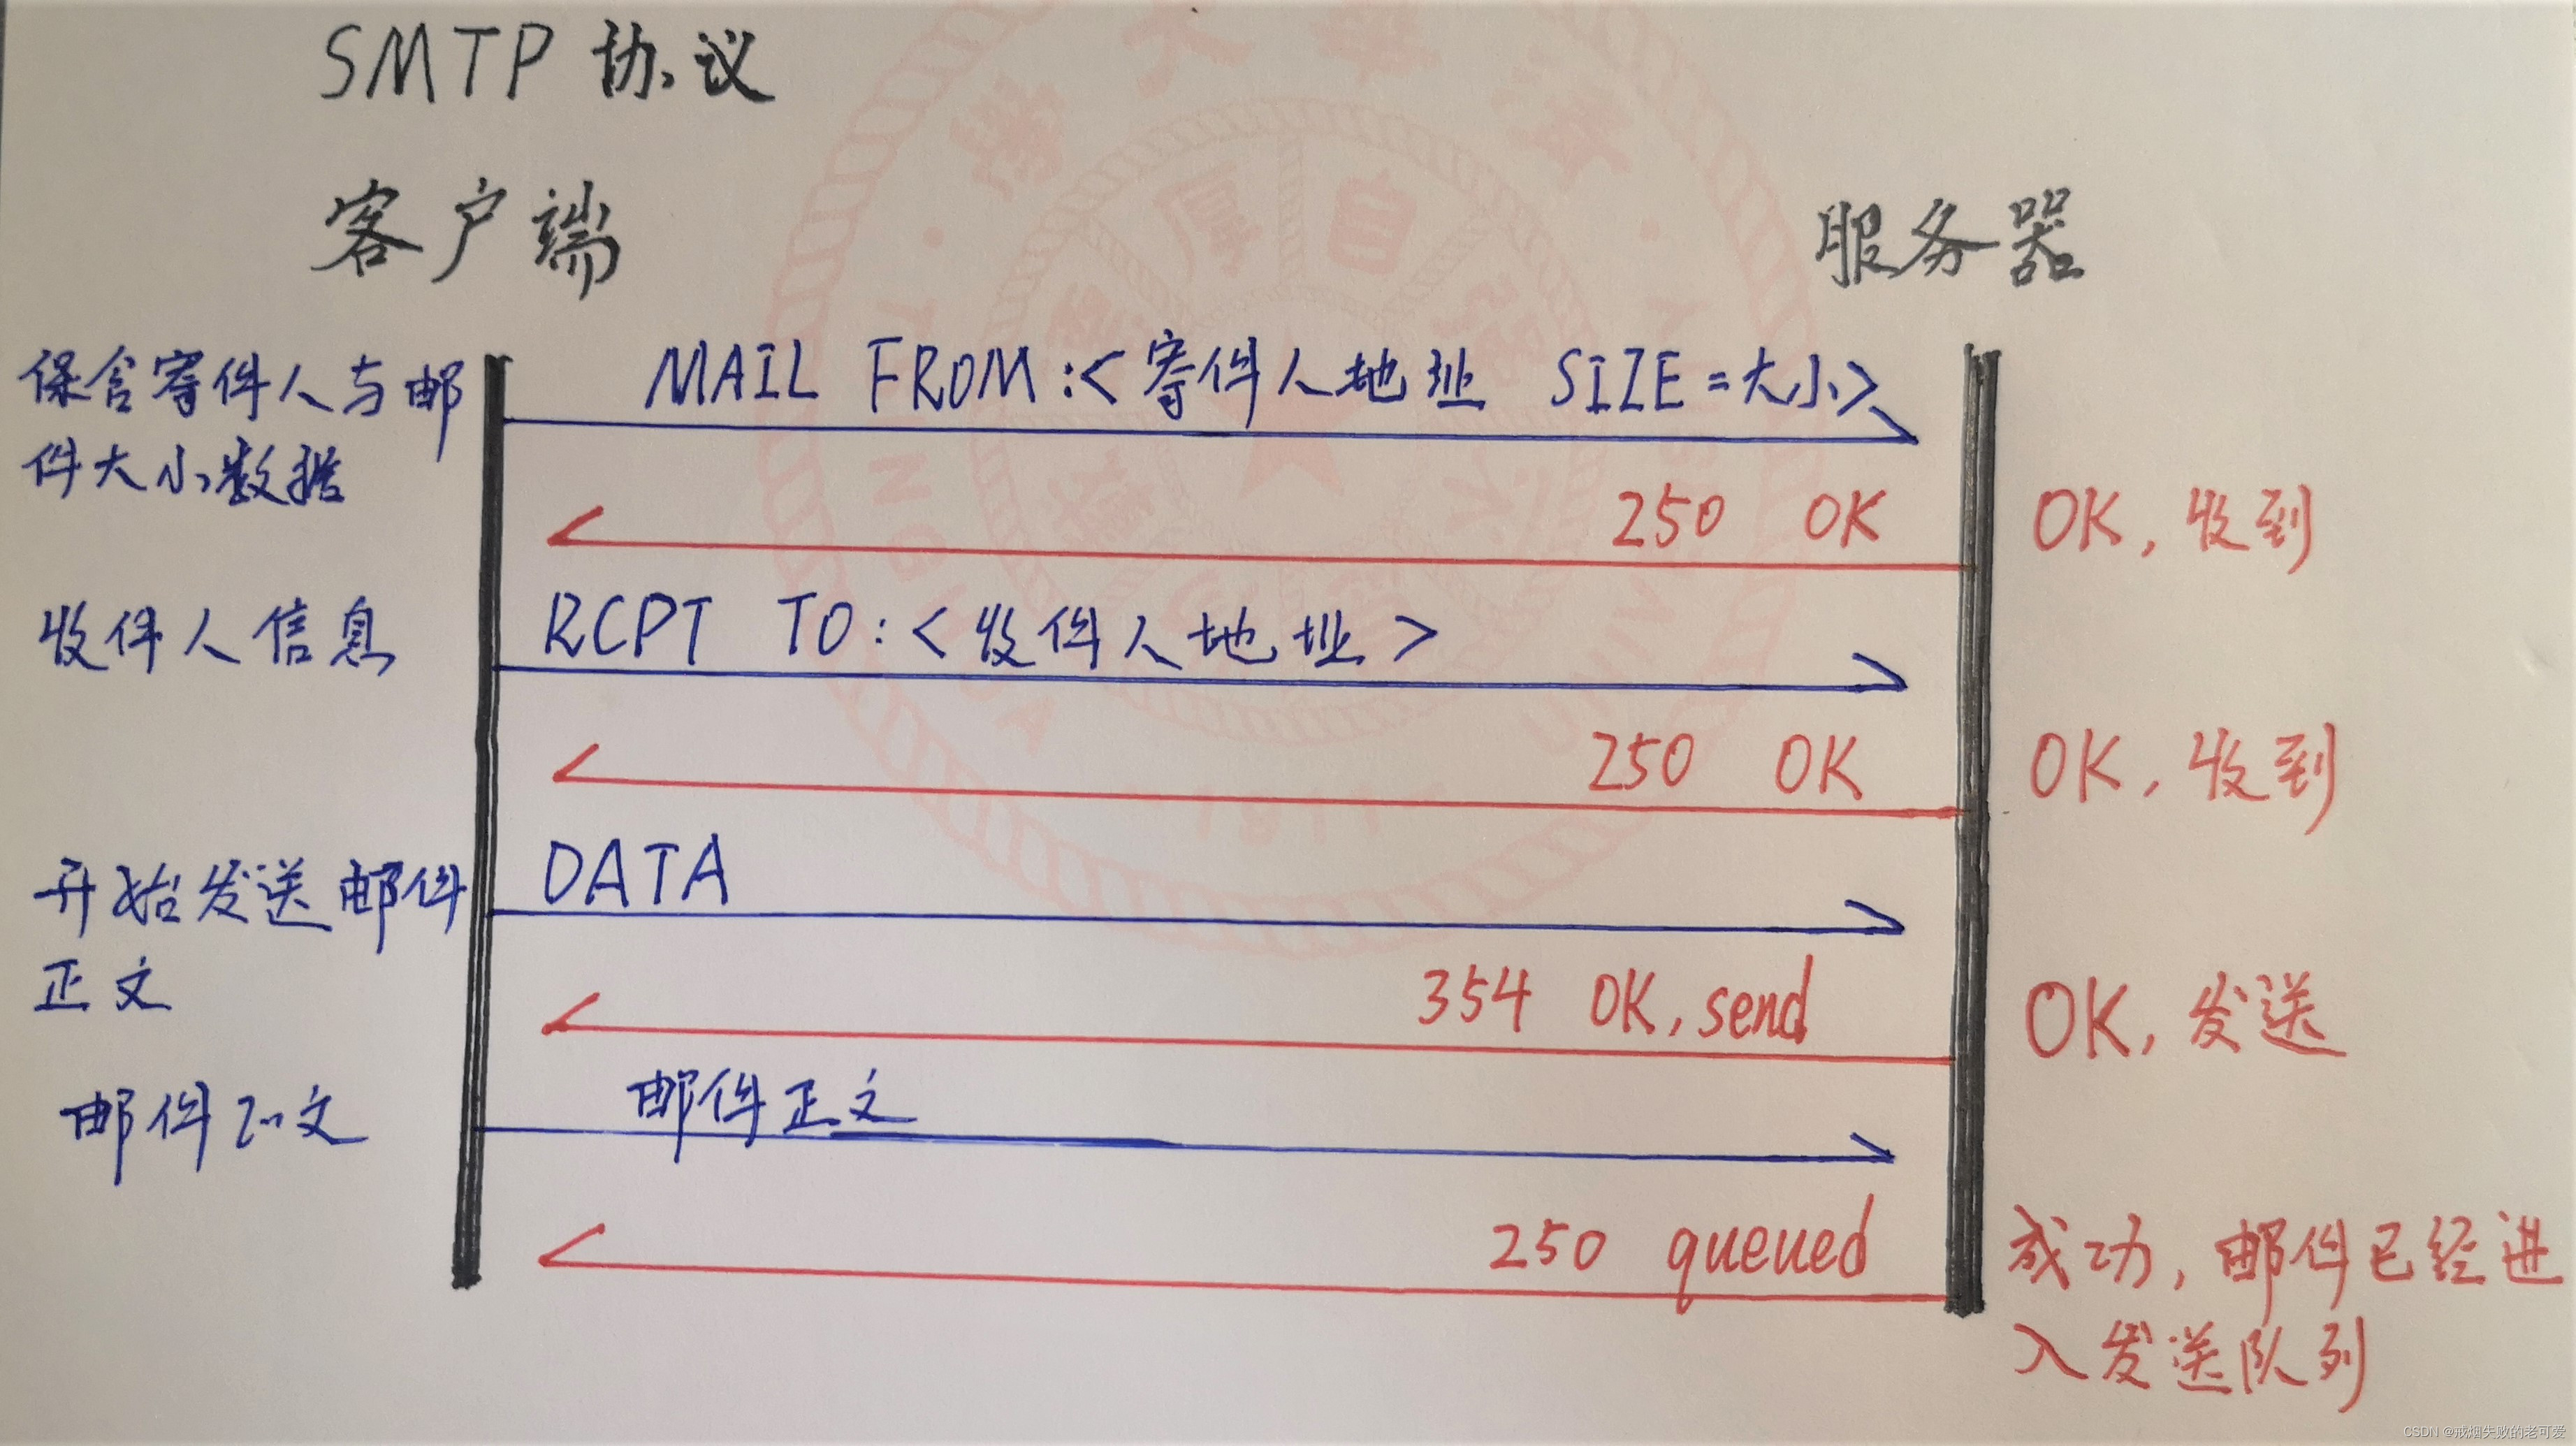 SMTP 协议
客户端
服务器
保含寄件人与邮
件大小数据
MAIL FROM:<寄件人地址 SIZE=大小>
250 OK
OK, 收到
收件人信息
RCPT TO:<收件人地址>
250 OK
OK, 收到
开始发送邮件
正文
DATA
354 OK, send
OK, 发送
邮件正文
邮件正文
250 queued
成功, 邮件已经进
入发送队列
CSDN @戒烟失败的老可爱